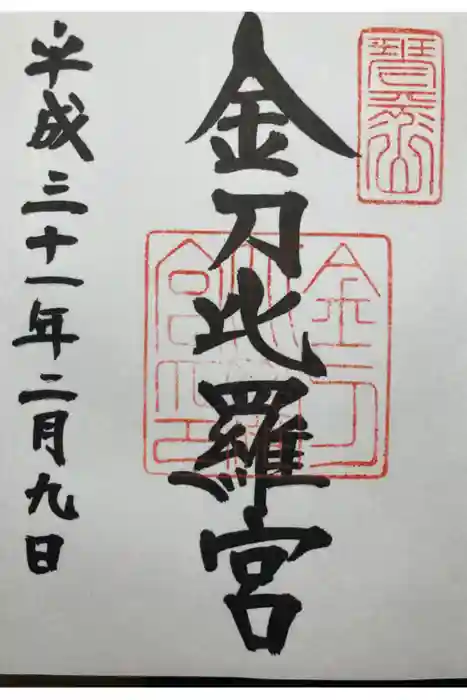 琴平山
金刀比羅宮
平成三十一年二月九日